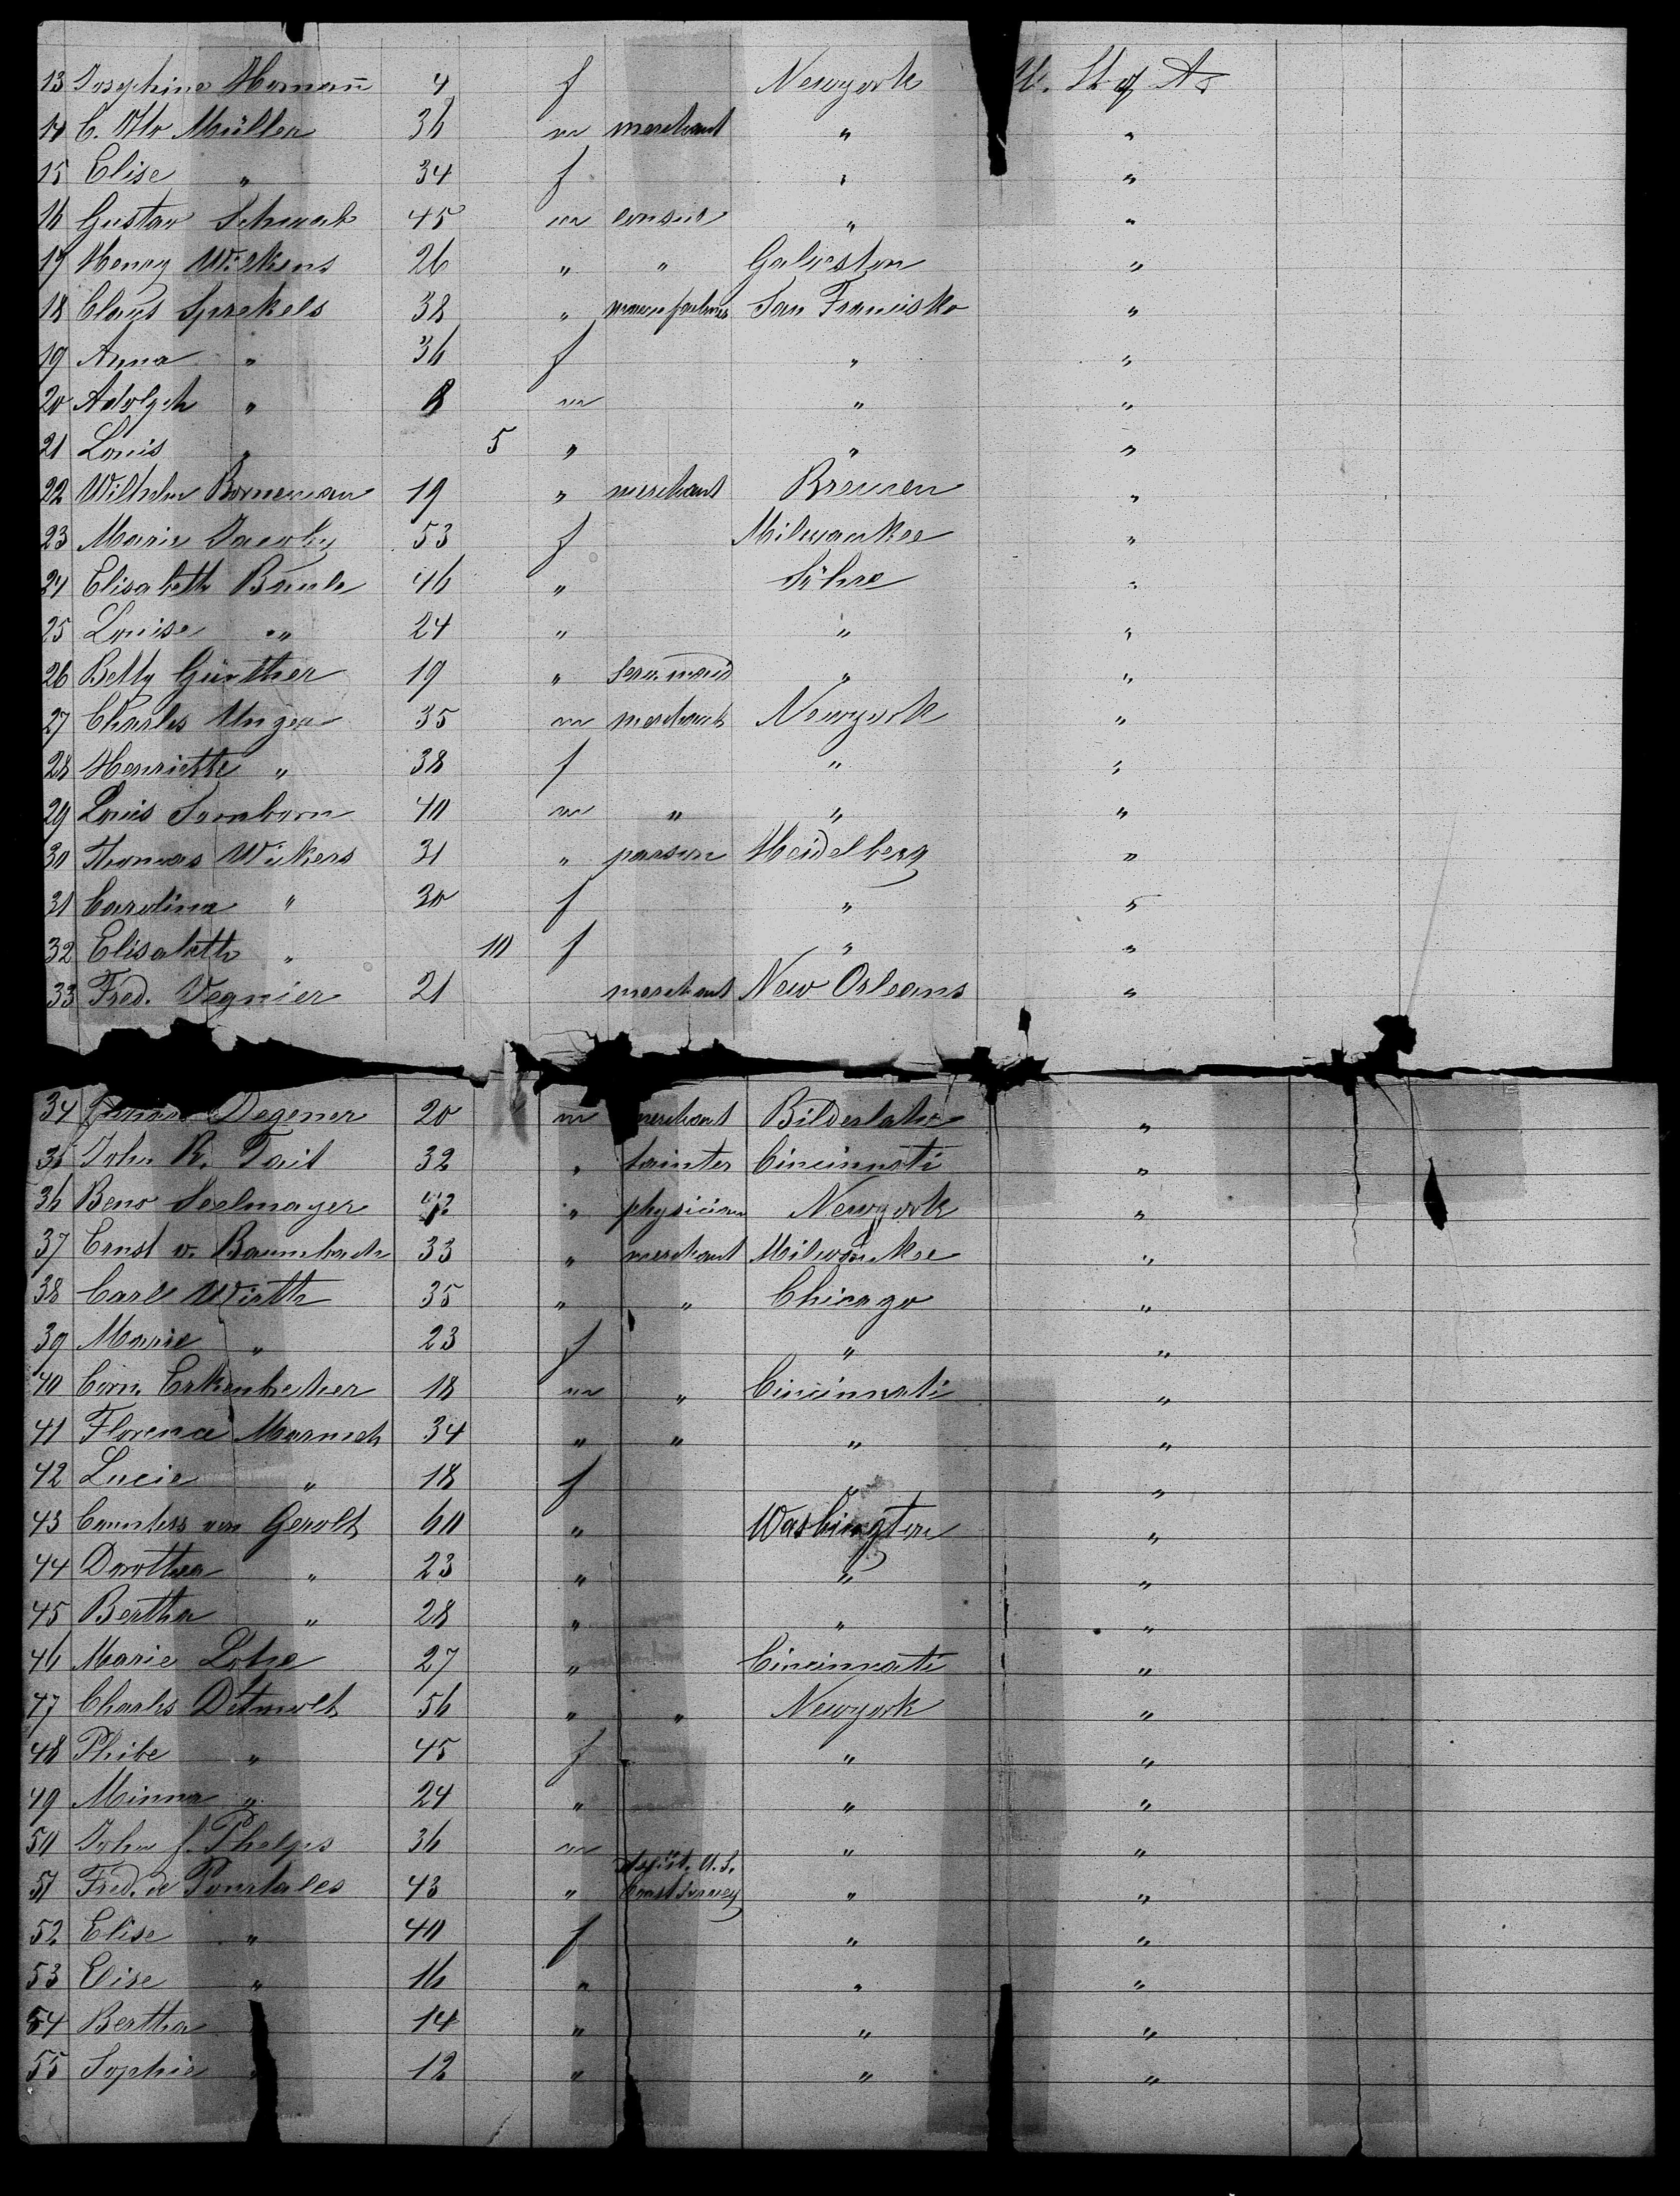 13 Josephine Homan̄ 4 f Newyork U. St. of A.
14 C. Otto Müller 36 m merchant " "
15 Elise " 34 f " "
16 Gustav Schwab 45 m consul " "
17 Henry Wilkens 26 " " Galveston "
18 Claus Sprekels 38 " manufacturer San Francisko "
19 Anna " 36 f " "
20 Adolph " 8 m " "
21 Louis " 5 " " "
22 Wilhelm Borneman 19 " merchant Bremen "
23 Marie Jacoby 53 f Milwaukee "
24 Elisabeth 46 " "
25 Louise " 24 " " "
26 Betty Günther 19 " serv. maid " "
27 Charles Unger 35 m merchant Newyork "
28 Henriette " 38 f " "
29 Louis Sonnborn 40 m " " "
30 Thomas Wickers 31 " parson Heidelberg "
31 Carolina " 30 f " "
32 Elisabeth " 10 f " "
33 Fred. Vegnier 21 merchant New Orleans "
34 Degener 20 m merchant "
35 John R. Tait 32 " painter Cincinnati "
36 Beno Seelmayer 42 " physician Newyork "
37 Ernst v. Baumbach 33 " merchant Milwaukee "
38 Carl Wirth 35 " " Chicago "
39 Marie " 23 f " "
40 Corn. Erkenbrecher 18 m " Cincinnati "
41 Florence Marmet 34 " " " "
42 Lucie " 18 f " "
43 Countess von Gerolt 60 " Washington "
44 Dorothea " 23 " " "
45 Bertha " 28 " " "
46 Marie Lohe 27 " Cincinnati "
47 Charles Detmolt 56 " " Newyork "
48 Phibe " 45 f " "
49 Minna " 24 " " "
50 John f. Phelps 36 m " "
51 Fred. de Pourtales 43 " Assist. U. S. Coast Survey " "
52 Elise " 40 f " "
53 Elise " 16 " " "
54 Bertha " 14 " " "
55 Sophie " 12 " " "